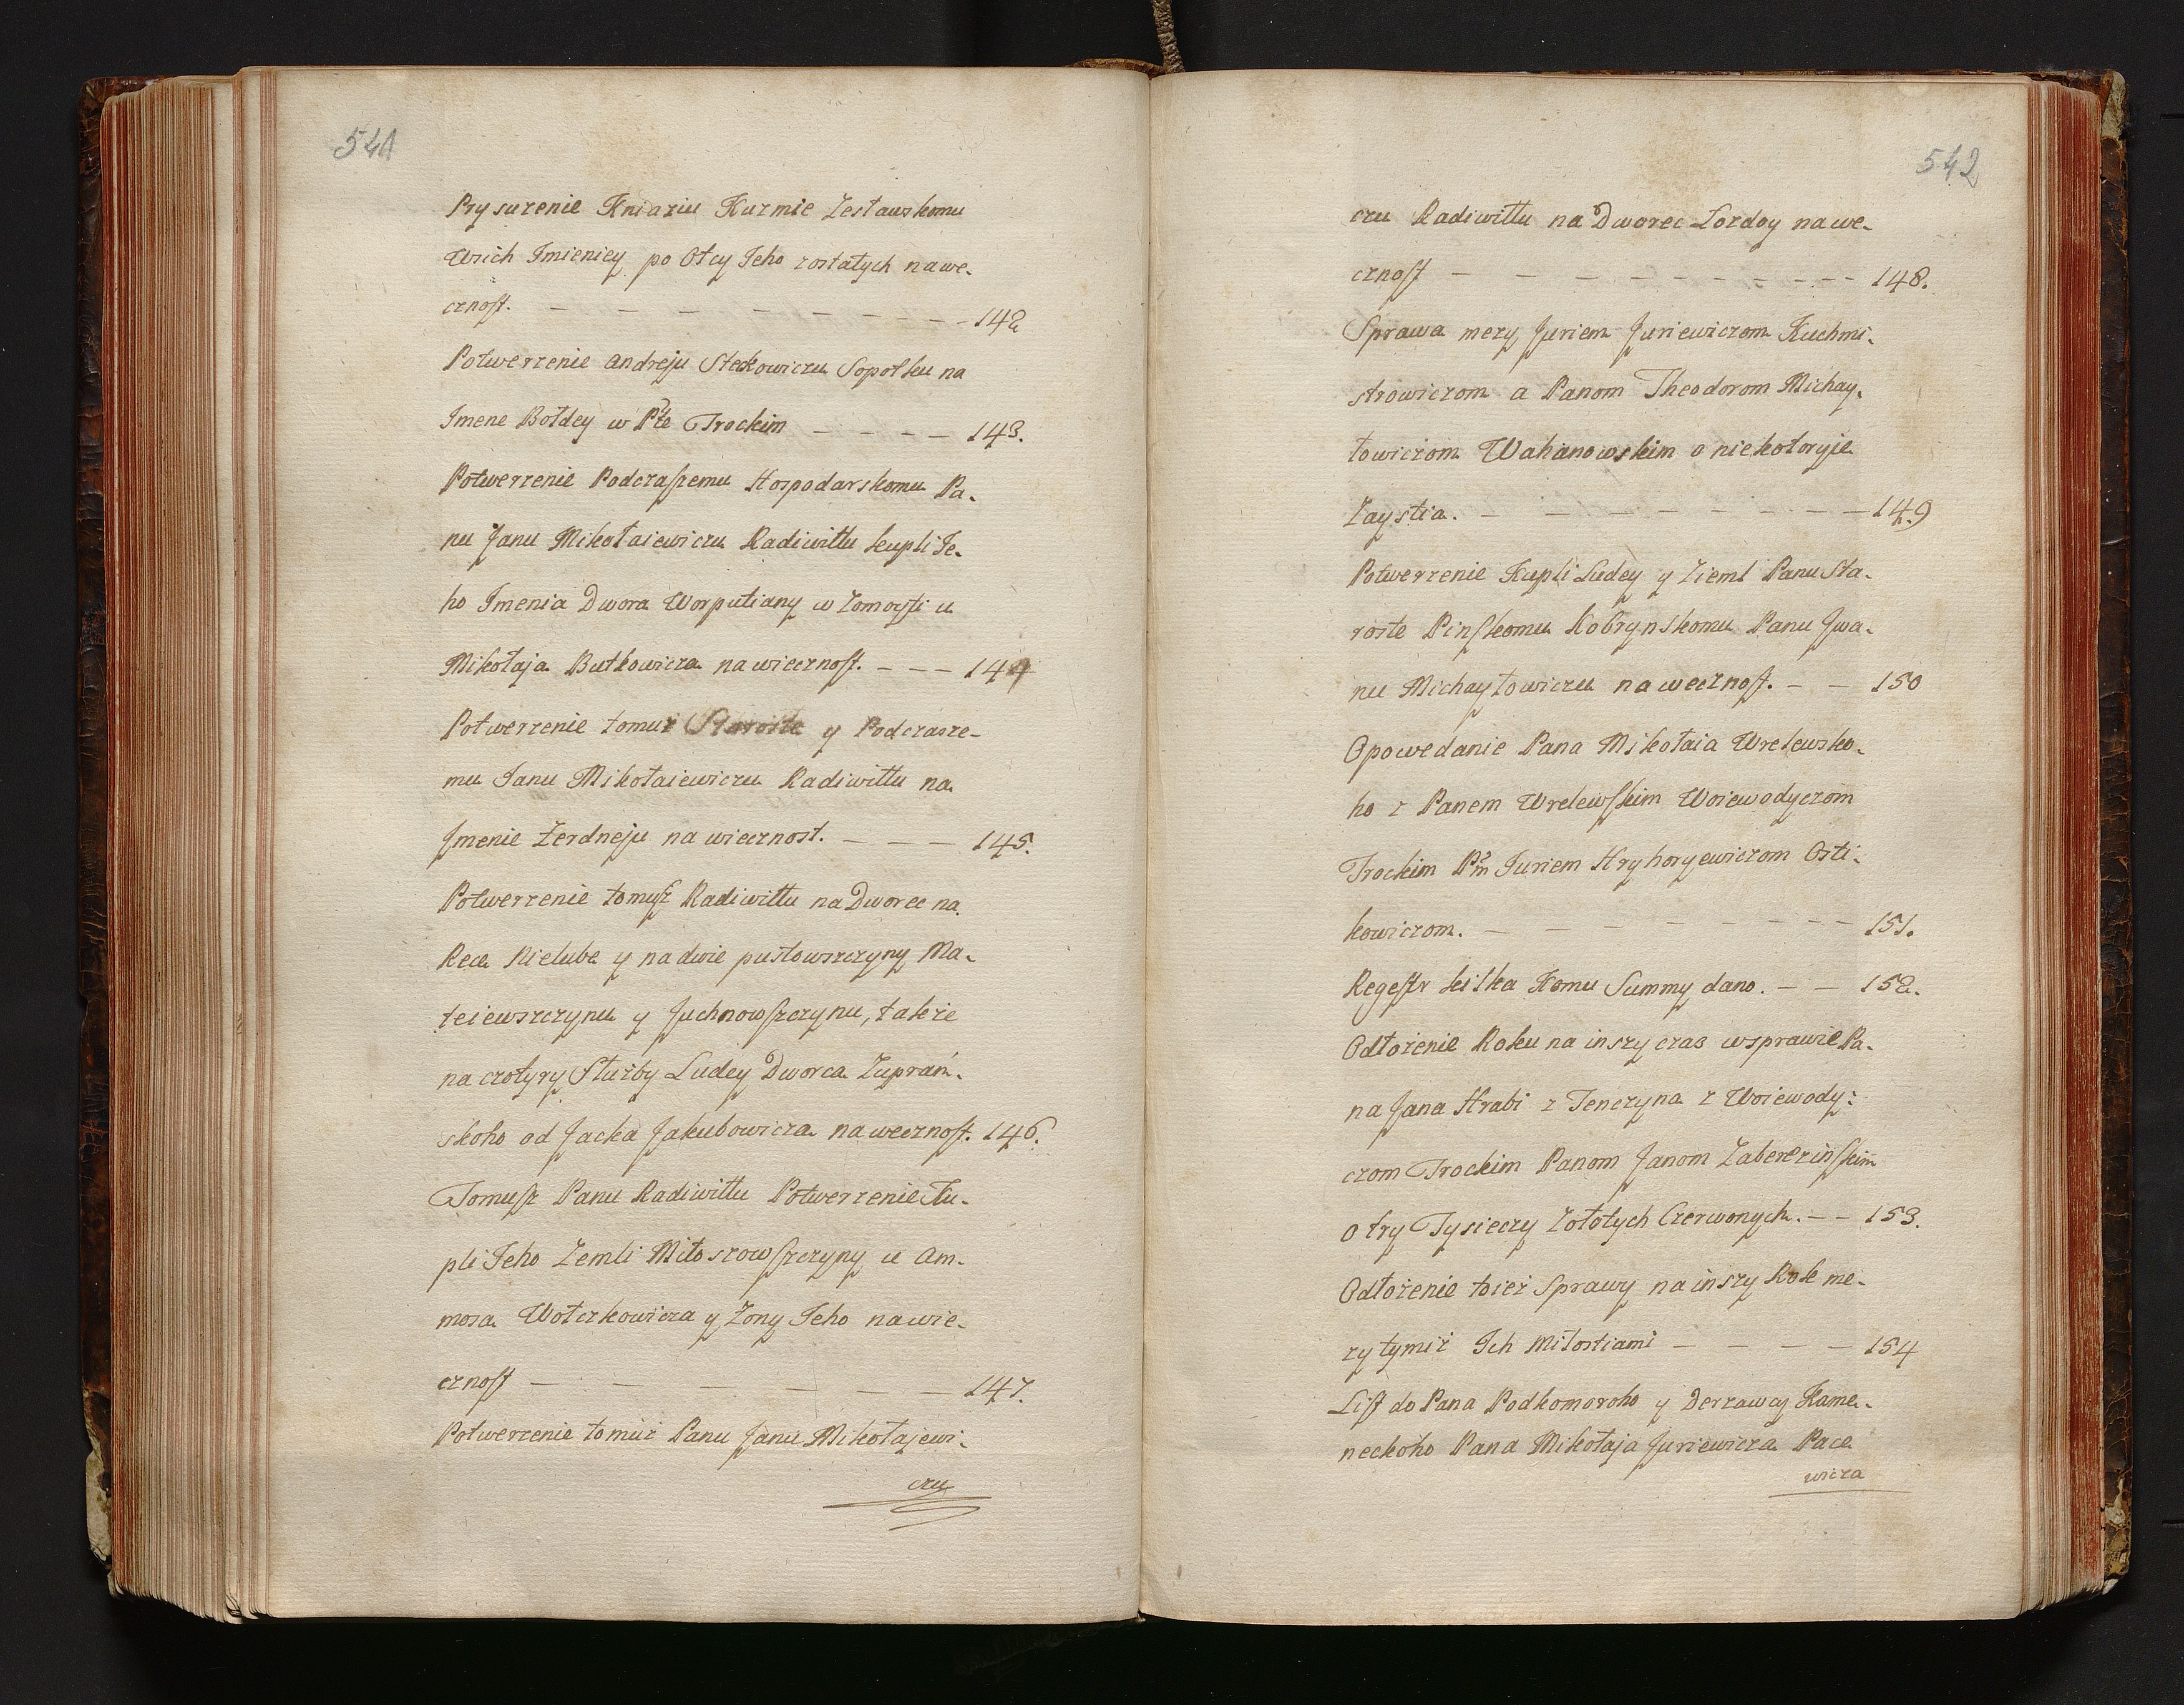 541
Prysuzenie Kniaziu Kuzmie Zestawskomu
Wsich Imieniey po Otcy Jeho zostałych nawe-
cznost. — — — — — — — — — 142
Potwerzenie Andreju Steckowiczu Sopotku na
Imene Bołdey w Pte Trockim — — — — 143.
Potwerzenie Podczaszemu Hospodarskomu Pa-
nu Janu Mikołaiewiczu Radiwiłłu kupli Je-
ho Imenia Dwora Worputiany w Zomoyti u
Mikołaja Butkowicza na wiecznost. — — — 144
Potwerzenie tomuż Staroste y Podczasze-
mu Janu Mikołaiewiczu Radiwiłłu na
Jmenie Zerdneju na wiecznost. — — — 145.
Potwerzenie tomusz Radiwiłłu na Dworec na
Rece Nielube y na dwie pustowszczyny Ma-
teiewszczynu y Juchnowszczynu, takze
na czotyry Służby Ludey Dworca Zuprań-
skoho od Jacka Jakubowicza na wecznost. 146.
Tomusz Panu Radiwiłłu Potwerzenie Ku-
pli Jeho Zemli Miłoszowszczyny u Am-
mosa Wołczkowicza y Zony Jeho na wie-
cznost — — — — — — 147.
Potwerzenie tomuż Panu Janu Mikołajewi-
czu
542
czu Radiwiłłu na Dworec Łozdey na we-
cznost — — — — — — — — — 148.
Sprawa mezy Juriem Juriewiczom Kuchmi-
strowiczom a Panom Theodorom Michay-
łowiczom Wahanowskim o niekotoryje
Zaystia. — — — — — — — — 149
Potwerzenie Kupli Ludey y Zieml Panu Sta-
roste Pinskomu Kobrynskomu Panu Jwa-
nu Michayłowiczu na wecznost. — — 150
Opowedanie Pana Mikołaia Wrelewsko-
ho z Panem Wrelewskim Woiewodyczom
Trockim Pm Juriem Hryhoryewiczom Osti-
kowiczom. — — — — — — — 151.
Regestr kilka Komu Summy dano. — — 152.
Odłożenie Roku na inszy czas wsprawie Pa-
na Jana Hrabi z Tenczyna z Woiewody-
czom Trockim Panom Janom Zaberezinskim
o try Tysieczy Zołotych Czerwonych. — — 153.
Odłożenie toież Sprawy na inszy Rok me-
zy tymiż Ich Miłostiami — — — — 154
List do Pana Podkomoroho y Derzawcy Kame-
neckoho Pana Mikołaja Juriewicza Pace
wicza